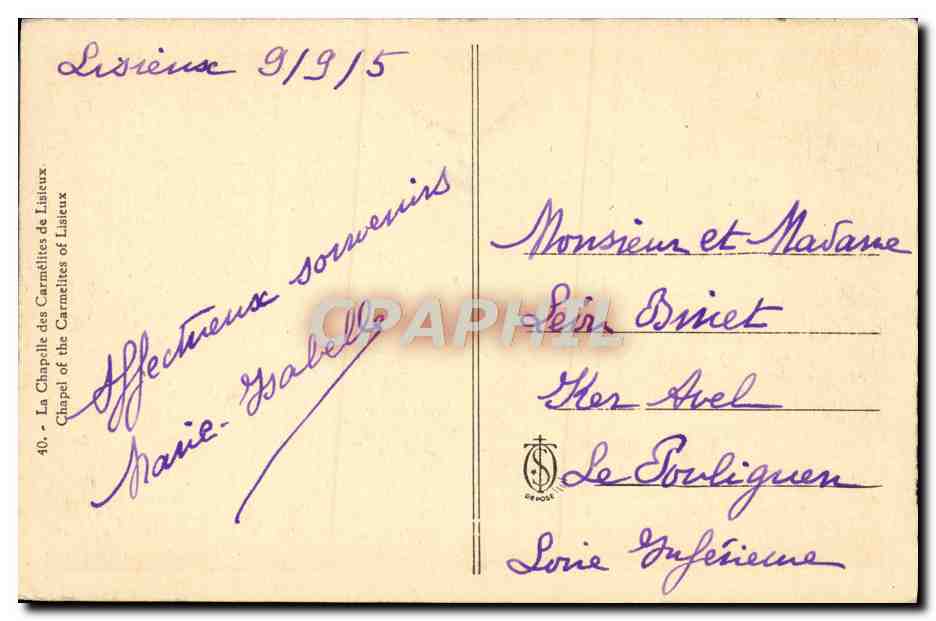 Lisieux 9/9/5
Affectueux souvenirs
Marie-Ysabelle
40. - La Chapelle des Carmélites de Lisieux.
Chapel of the Carmelites of Lisieux
Monsieur et Madame
Binet
Ker Avel
Le Pouliguen
Loire Inférieure
DEPOSE
CPAPHIL